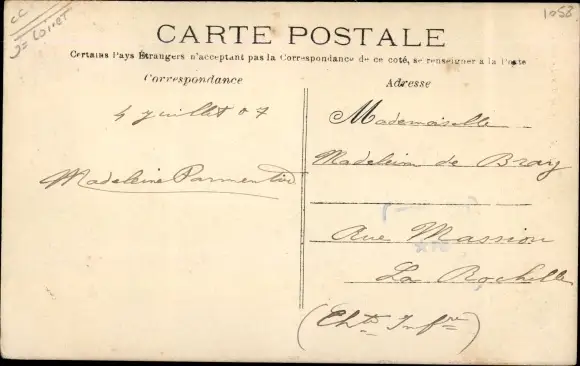 cc
1058
CARTE POSTALE
Certains Pays Étrangers n'acceptant pas la Correspondance de ce coté, se renseigner à la Poste
Correspondance
Adresse
4 juillet 07
Mademoiselle
Madeleine de Bray
Madeleine Parmentier
Rue Massiou
La Rochelle
(Chte Infre)